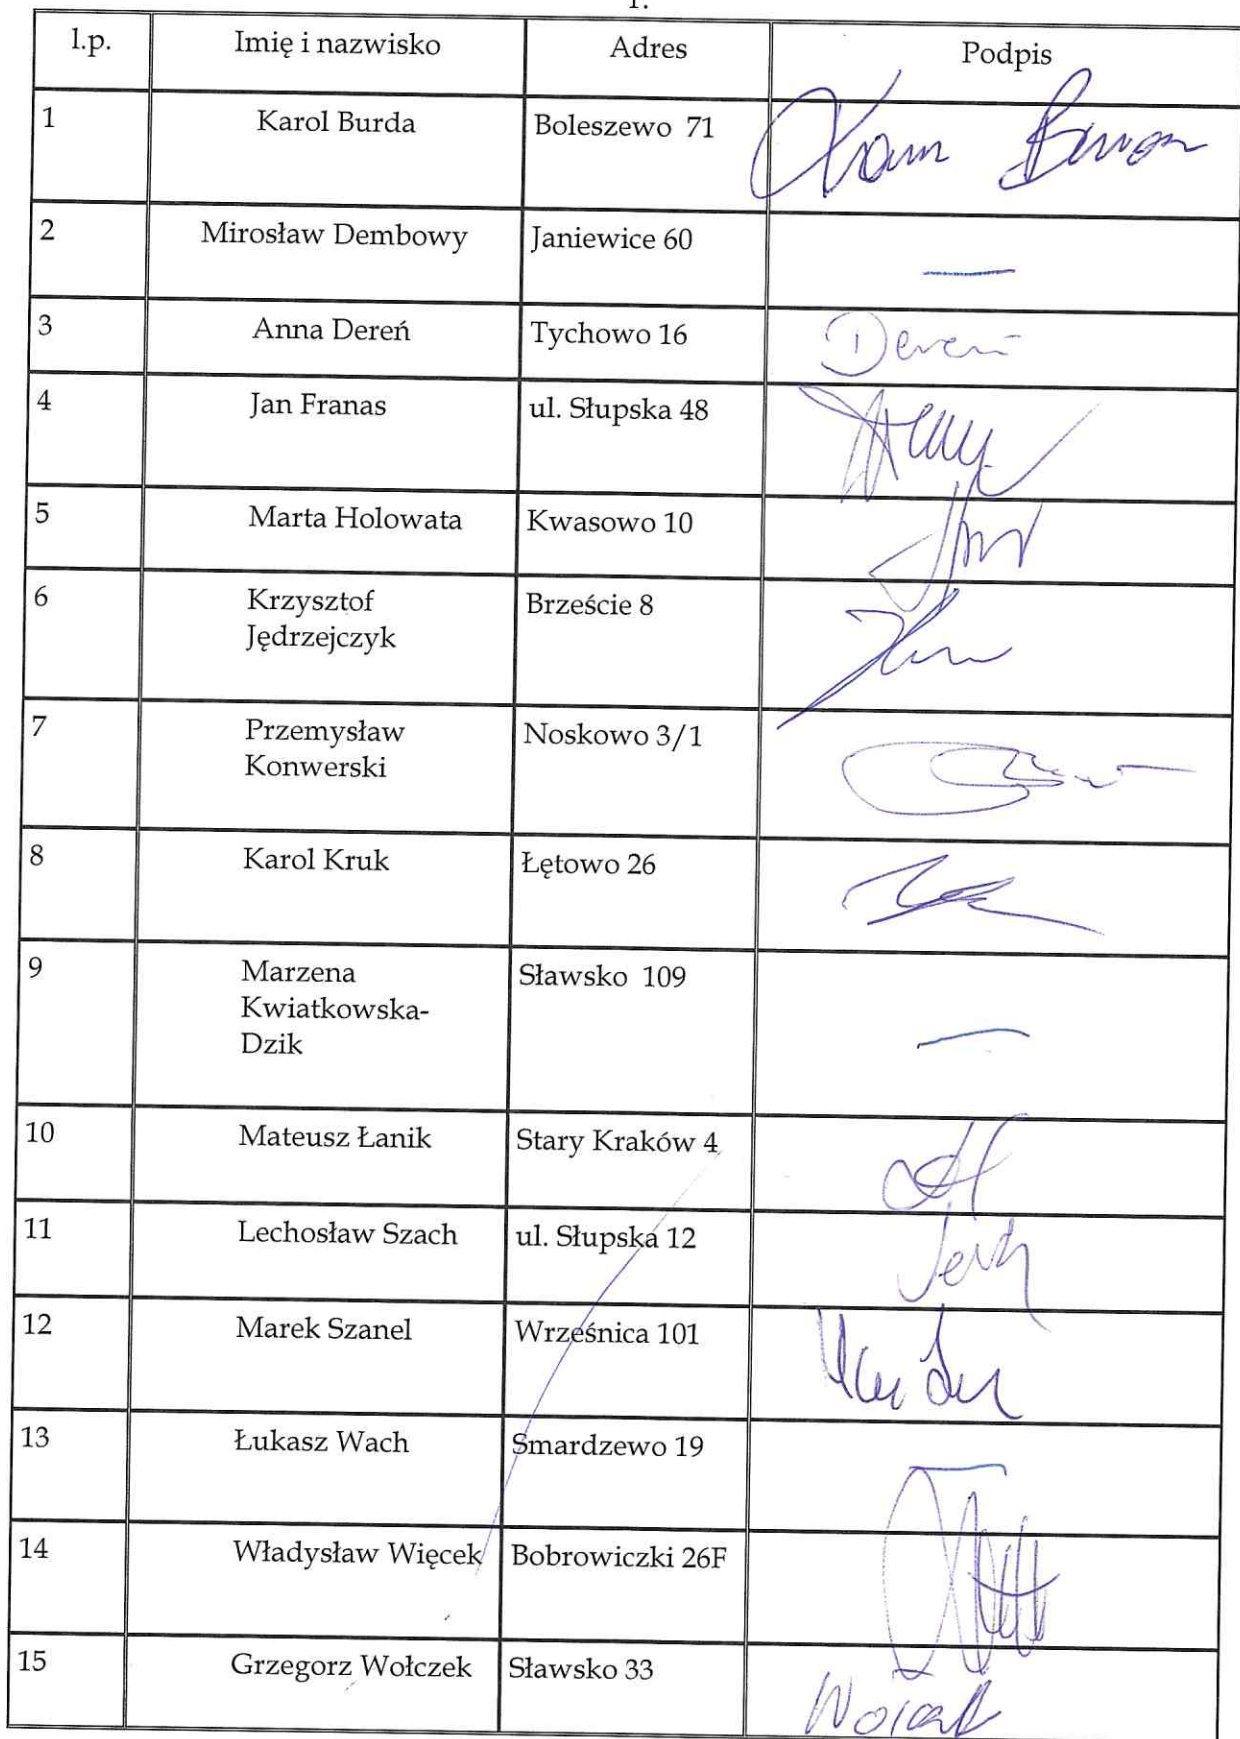 1.
l.p. Imię i nazwisko Adres Podpis
1 Karol Burda Boleszewo 71
2 Mirosław Dembowy Janiewice 60 —
3 Anna Dereń Tychowo 16 Dereń
4 Jan Franas ul. Słupska 48
5 Marta Holowata Kwasowo 10
6 Krzysztof Brzeście 8
Jędrzejczyk
7 Przemysław Noskowo 3/1
Konwerski
8 Karol Kruk Łętowo 26
9 Marzena Sławsko 109
Kwiatkowska-
Dzik —
10 Mateusz Łanik Stary Kraków 4
11 Lechosław Szach ul. Słupska 12
12 Marek Szanel Wrześnica 101
13 Łukasz Wach Smardzewo 19 —
14 Władysław Więcek Bobrowiczki 26F
15 Grzegorz Wołczek Sławsko 33